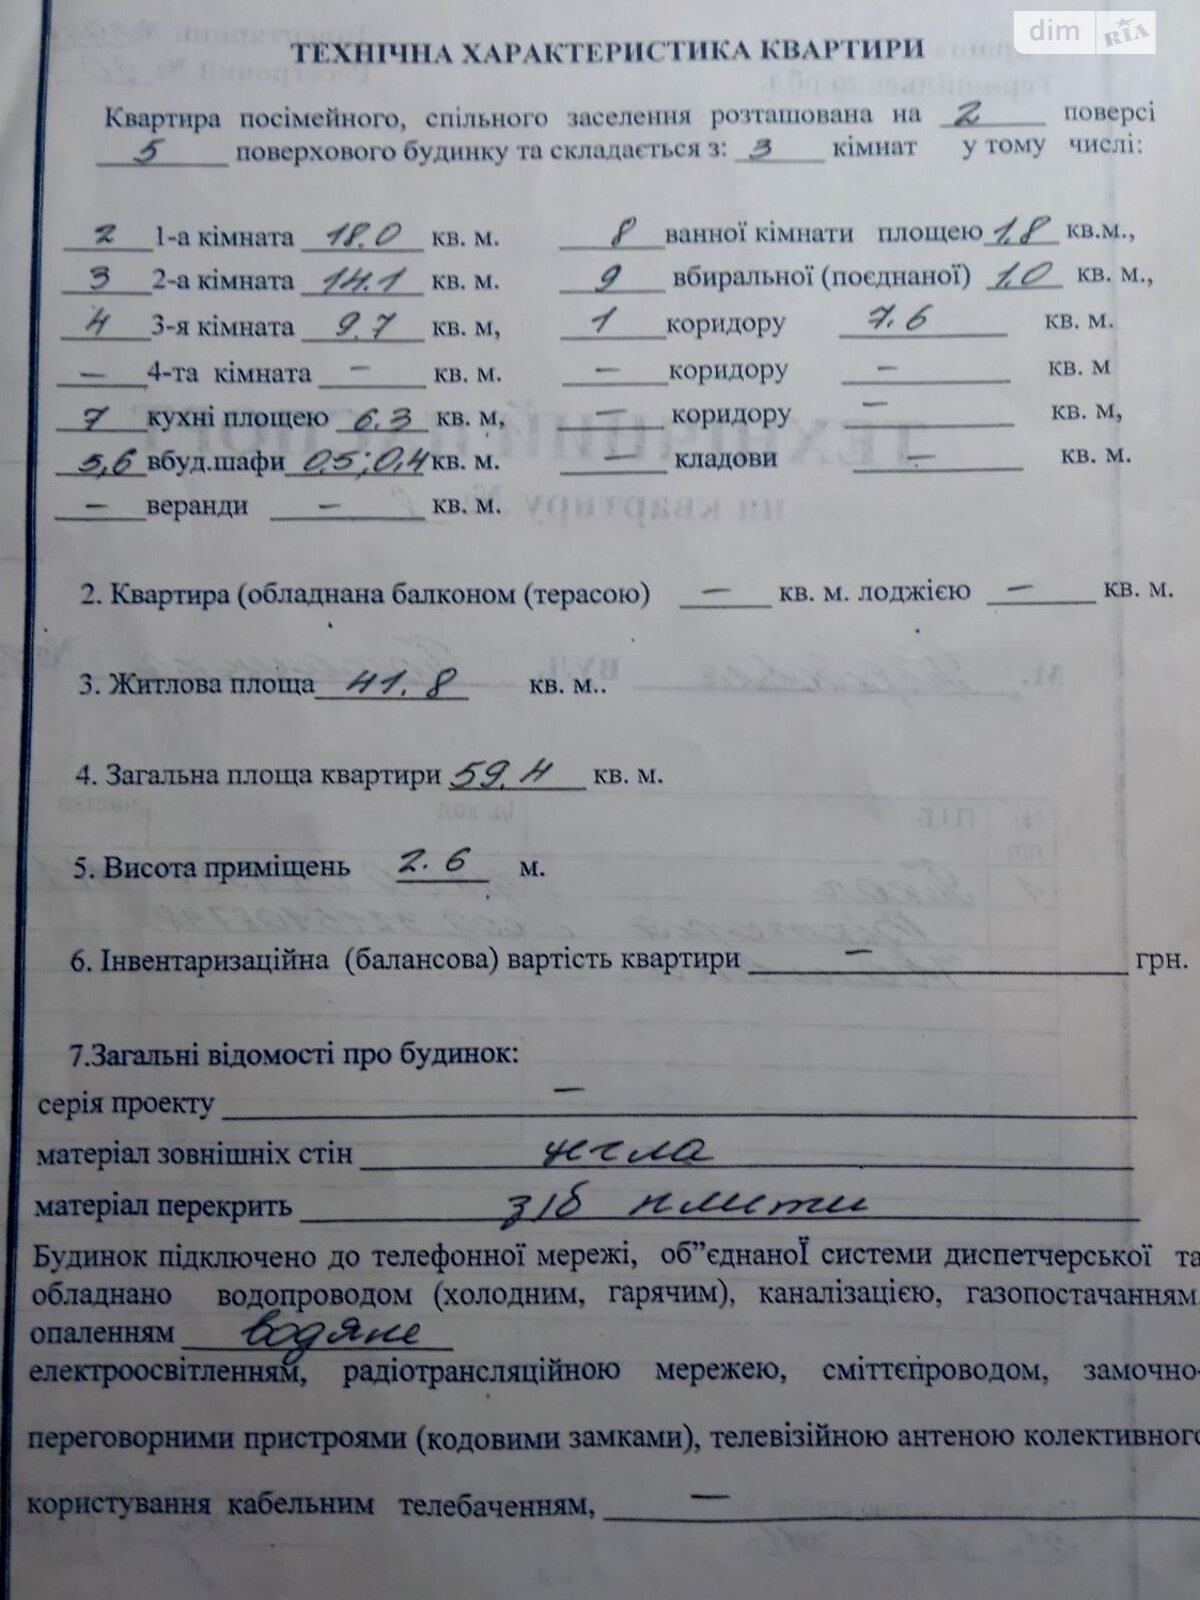 dim RIA
ТЕХНІЧНА ХАРАКТЕРИСТИКА КВАРТИРИ
Квартира посімейного, спільного заселення розташована на 2 поверсі
5 поверхового будинку та складається з: 3 кімнат у тому числі:
2 1-а кімната 18.0 кв. м. 8 ванної кімнати площею 1,8 кв.м.,
3 2-а кімната 14.1 кв. м. 9 вбиральної (поєднаної) 1,0 кв. м.,
4 3-я кімната 9.7 кв. м, 1 коридору 7.6 кв. м.
— 4-та кімната — кв. м. — коридору — кв. м
7 кухні площею 6.3 кв. м, — коридору — кв. м,
5,6 вбуд.шафи 0,5;0,4 кв. м. — кладови — кв. м.
— веранди — кв. м.
2. Квартира (обладнана балконом (терасою) — кв. м. лоджією — кв. м.
3. Житлова площа 41.8 кв. м..
4. Загальна площа квартири 59.4 кв. м.
5. Висота приміщень 2.6 м.
6. Інвентаризаційна (балансова) вартість квартири — грн.
7.Загальні відомості про будинок:
серія проекту —
матеріал зовнішніх стін цегла
матеріал перекрить з/б плити
Будинок підключено до телефонної мережі, об”єднаноЇ системи диспетчерської та
обладнано водопроводом (холодним, гарячим), каналізацією, газопостачанням,
опаленням водяне
електроосвітленням, радіотрансляційною мережею, сміттєпроводом, замочно-
переговорними пристроями (кодовими замками), телевізійною антеною колективного
користування кабельним телебаченням, —